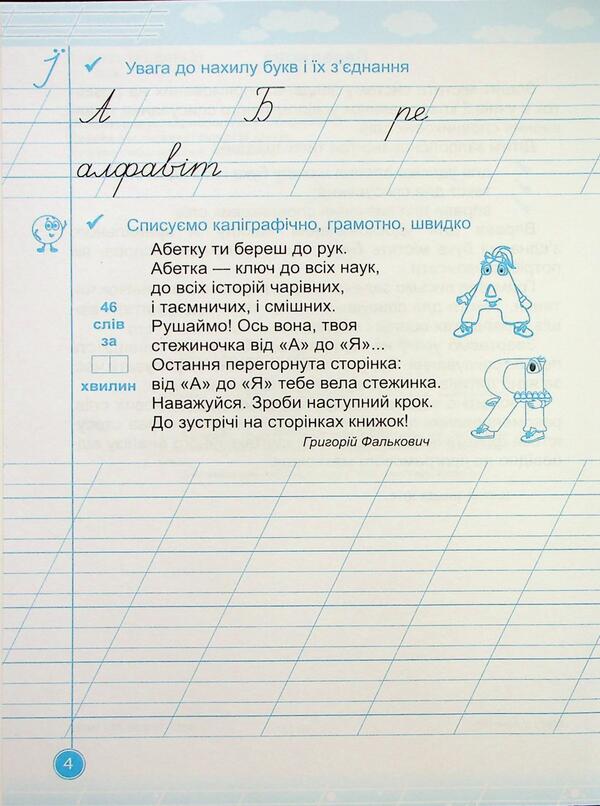 Ї
Увага до нахилу букв і їх з’єднання
А Б ре
алфавіт
Списуємо каліграфічно, грамотно, швидко
Абетку ти береш до рук.
Абетка — ключ до всіх наук,
до всіх історій чарівних,
і таємничих, і смішних.
Рушаймо! Ось вона, твоя
стежиночка від «А» до «Я»...
Остання перегорнута сторінка:
від «А» до «Я» тебе вела стежинка.
Наважуйся. Зроби наступний крок.
До зустрічі на сторінках книжок!
Григорій Фалькович
46
слів
за
хвилин
4